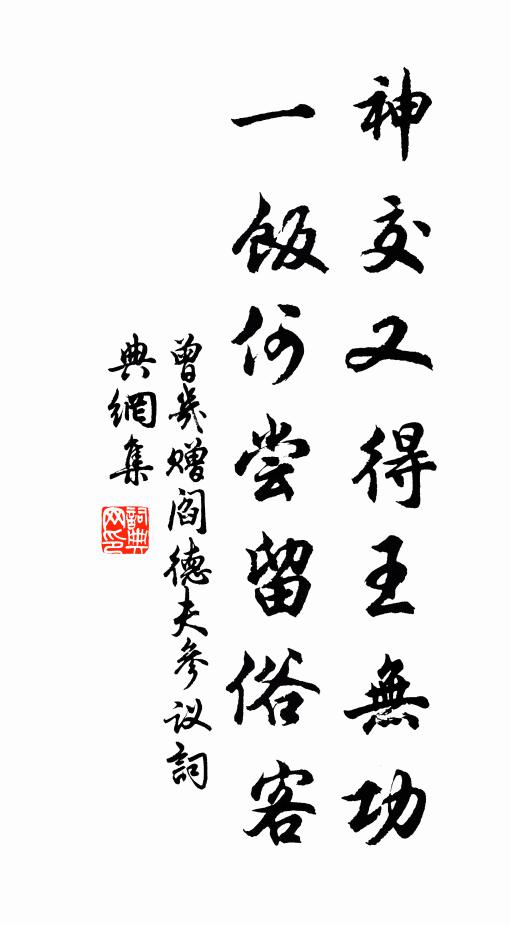 神交又得王無功
一飯何尝留俗客
曾幾赠閻德夫參议詞
典網集
詞典网印